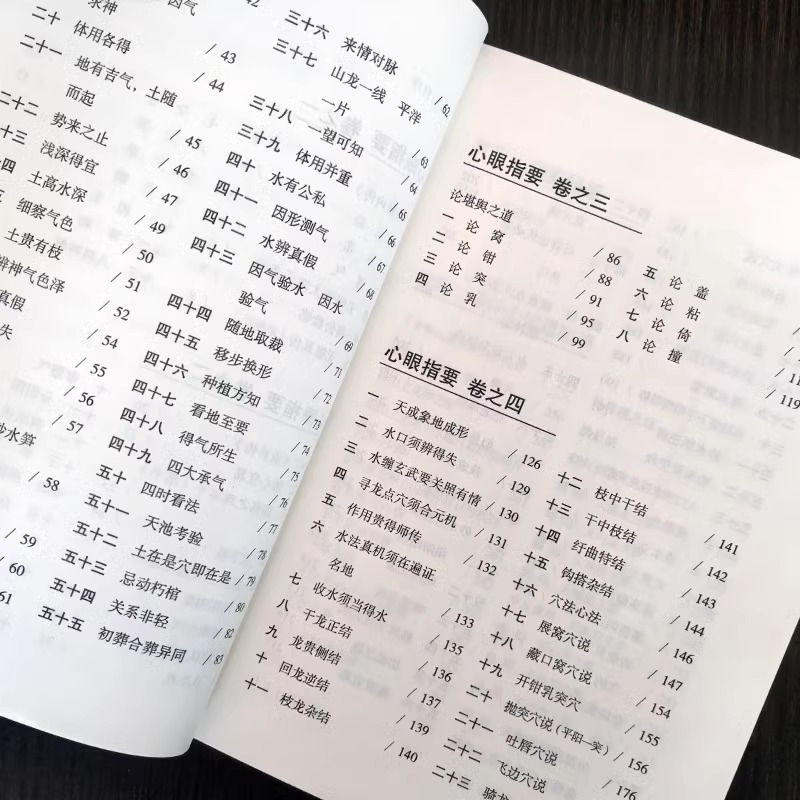 因气 / 42
求神
二十 体用各得 / 43
二十一 地有吉气，土随
而起 / 44
二十二 势来之止 / 45
十三 浅深得宜 / 46
四 土高水深 / 47
细察气色 / 49
土贵有枝 / 50
辨神气色泽 / 51
真假 / 52
失 / 54
/ 55
/ 56
水算 / 57
/ 58
/ 59
/ 60
61
三十六 来情对脉 / 62
三十七 山龙一线 平洋
一片 / 63
三十八 一望可知 / 64
三十九 体用并重 / 65
四十 水有公私 / 66
四十一 因形测气 / 67
四十二 水辨真假 / 68
四十三 因气验水 因水
验气 / 69
四十四 随地取裁 / 71
四十五 移步换形 / 72
四十六 种植方知 / 73
四十七 看地至要 / 74
四十八 得气所生 / 75
四十九 四大承气 / 76
五十 四时看法 / 77
五十一 天池考验 / 78
五十二 土在是穴即在是 / 79
五十三 忌动朽棺 / 80
五十四 关系非轻 / 82
五十五 初葬合葬异同 / 83
心眼指要 卷之三
论堪舆之道 / 86
一 论 窝 / 88
二 论 钳 / 91
三 论 突 / 95
四 论 乳 / 99
五 论 盖
六 论 粘
七 论 倚
八 论 撞 / 119
心眼指要 卷之四
一 天成象地成形 / 126
二 水口须辨得失 / 129
三 水缠玄武要关照有情 / 130
四 寻龙点穴须合元机 / 131
五 作用贵得师传 / 132
六 水法真机须在遍证
名地 / 133
七 收水须当得水 / 135
八 干龙正结 / 136
九 龙贵侧结 / 137
十 回龙逆结 / 139
十一 枝龙杂结 / 140
十二 枝中干结 / 141
十三 干中枝结 / 142
十四 纡曲特结 / 143
十五 钩搭杂结 / 144
十六 穴法心法 / 146
十七 展窝穴说 / 147
十八 藏口窝穴说 / 154
十九 开钳乳突穴 / 155
二十 抛突穴说（平阳一突） / 156
二十一 吐唇穴说 / 176
二十二 飞边穴说
二十三 骑龙